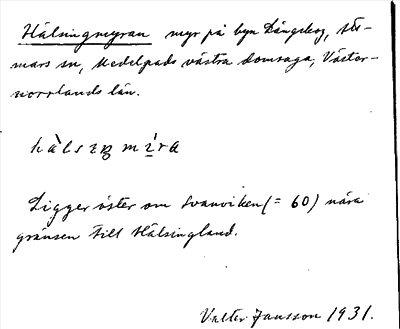 Hälsingmyran myr på byn Långskog, Stö-
mars sn, Medelpads västra domsaga, Väster-
norrlands län.
Ligger öster om Svanviken (= 60) nära
gränsen till Hälsingland.
Valter Jansson 1931.